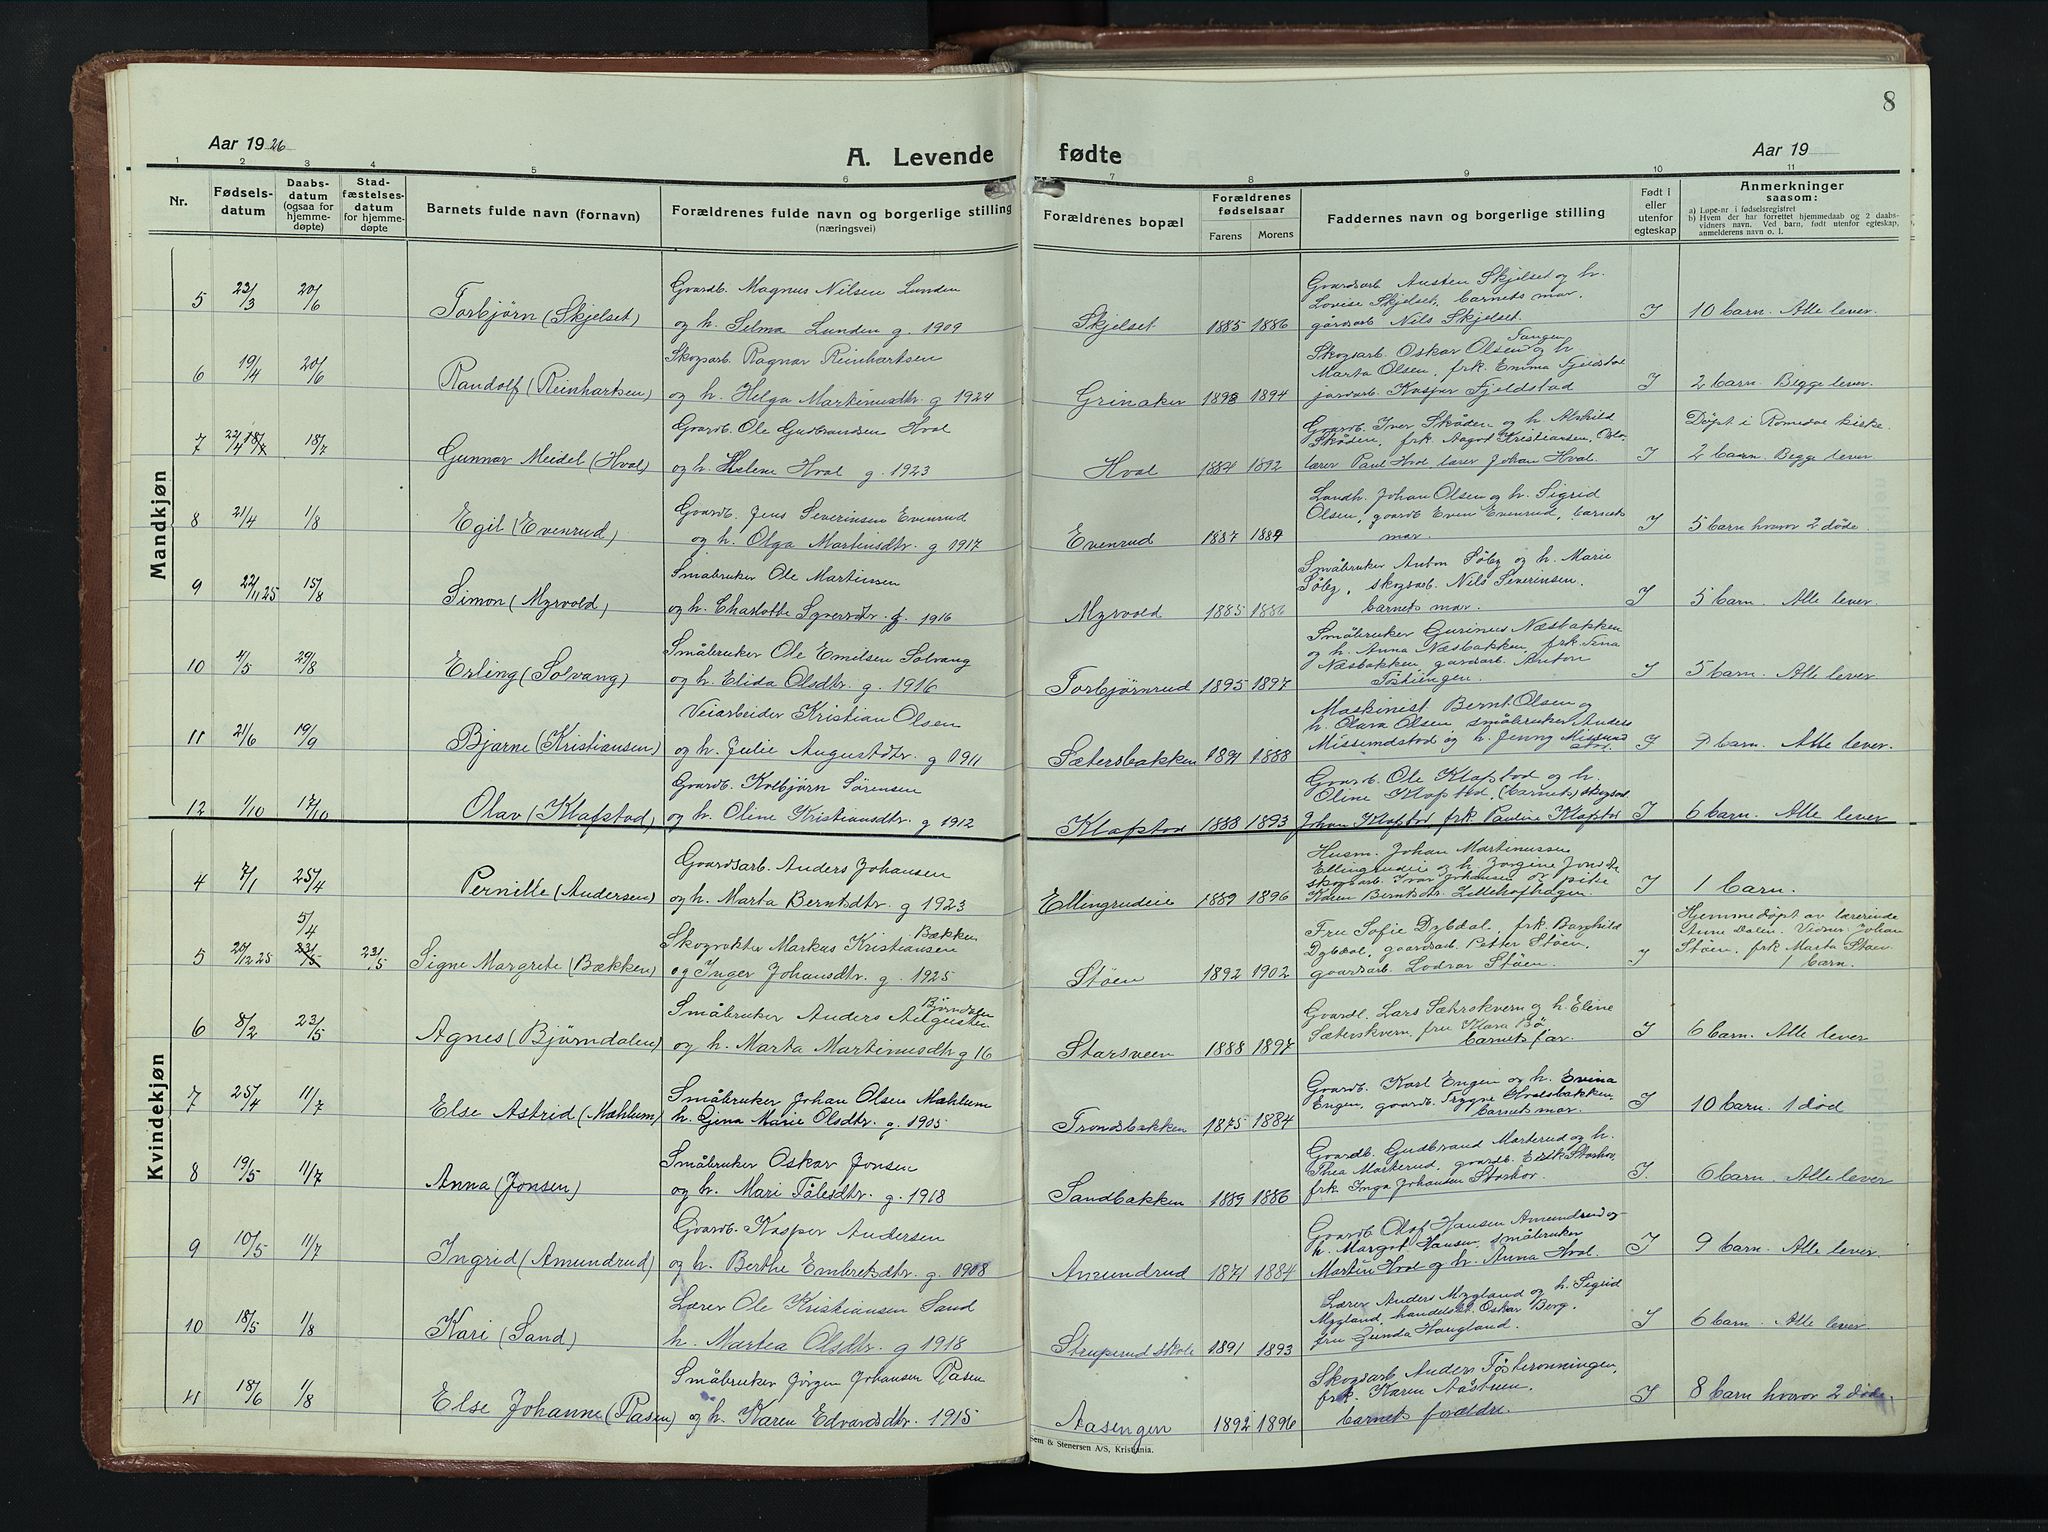 8
Aar 1926
A. Levende fødte
Aar 19
1 2 3 4 5 6 7 8 9 10 11
Nr.
Fødselsdatum
Daabsdatum (ogsaa for hjemmedøpte)
Stadfæstelsesdatum for hjemmedøpte
Barnets fulde navn (fornavn)
Forældrenes fulde navn og borgerlige stilling (næringsvei)
Forældrenes bopæl
Forældrenes fødselsaar
Farens Morens
Faddernes navn og borgerlige stilling
Født i eller utenfor egteskap
Anmerkninger saasom:
a) Løpe-nr i fødselsregistret
b) Hvem der har forrettet hjemmedaab og 2 daabsvidners navn. Ved barn, født utenfor egteskap, anmelderens navn o. l.
Mandkjøn
5 23/3 20/6 Torbjørn (Skjelset)
Gaardb. Magnus Nilsen Lunden
og h. Selma Lunden g. 1909
Skjelset 1885 1886
Gaardsarb. Austen Skjelset og h.
Lovise Skjelset, barnets mor,
gårdsarb. Nils Skjelset
I 10 barn. Alle lever.
6 19/4 20/6 Randolf (Reinhartsen)
Skogsarb. Ragnar Reinhartsen
og h. Helga Martinusdtr. g 1924
Grinaker 1898 1894
Skogsarb. Oskar Olsen Tangen og h.
Marta Olsen, frk. Emma Fjeldstad
jordarb. Kaspar Fjeldstad
I 2 barn. Begge lever.
7 22/4 18/7 Gunnar Meidel (Hval)
Gaardb. Ole Gudbrandsen Hval
og h. Helene Hval g. 1923
Hval 1884 1892
Gaardb. Iver Skåden og h. Alshild
Skåden, frk. Aagot Kristiansen, Oslo
lærer Paul Hval, lærer Johan Hval.
I Døpt i Romedal kirke.
2 barn. Begge lever.
8 21/4 1/8 Egil (Evenrud)
Gaardb. Jens Severinsen Evenrud
og h. Olga Martinsdtr. g 1917
Evenrud 1887 1889
Landh. Johan Olsen og h. Sigrid
Olsen, gaardb Even Evenrud, barnets
mor.
I 5 barn hvorav 2 døde.
9 22/11 25 15/8 Simon (Myrvold)
Småbruker Ole Martinsen
og h. Charlotte Syversdtr. g. 1916
Myrvold 1885 1886
Småbruker Anton Söby og h. Marie
Söby, skogsarb. Nils Severinsen.
barnets mor.
I 5 barn. Alle lever.
10 4/5 29/8 Erling (Solvang)
Småbruker Ole Emilsen Solvang
og h. Elida Olsdtr. g. 1916
Torbjørnrud 1895 1897
Småbruker Gurinus Næsbakken
og h. Anna Næsbakken, frk. Tena
Næsbakken, gårdsarb. Anton
Töstiengen.
I 5 barn. Alle lever.
11 21/6 19/9 Bjarne (Kristiansen)
Veiarbeider Kristian Olsen
og h. Julie Augustdtr. g 1911
Sætersbakken 1891 1888
Maskinest Bernt Olsen og
h. Olava Olsen, småbruker Anders
Missundstad og h. Jenny Missundstad.
I 9 barn. Alle lever.
12 1/10 17/10 Olav (Klafstad)
Gaardb. Kolbjørn Sørensen
og h. Oline Kristiansdtr. g. 1912
Klafstad 1888 1893
Gaardb. Ole Klafstad og h.
Oline Klafstad, (barnets) skogsarb
Johan Klafstad frk. Pauline Klafstad
I 6 barn. Alle lever
Kvindekjøn
4 7/1 25/4 Pernille (Andersen)
Gaardsarb. Anders Johansen
og h. Marta Berntsdtr. g 1923
Ellingrudeie 1889 1896
Husm. Johan Martinussen
Ellingrudeie og h. Jørgine Jonsdtr
skogsarb. Ivar Johansen og pike
Karen Berntsdtr. Lillehafhagen
I 1 barn.
5 20/12 25 5/4 23/5 23/5 Signe Margrete (Bækken)
Skogvokter Markus Kristiansen Bækken
og Inger Johansdtr. g. 1925
Støen 1892 1902
Fru Sofie Dybdal, frk. Borghild
Dybdal, gaardsarb. Petter Støen,
gaardsarb. Lodvar Støen
I Hjemmedøpt av lærerinde
Anne Dalen. Vidner: Johan
Støen, frk Marta Støen
1 barn.
6 8/2 23/5 Agnes (Bjørndalen)
Småbruker Anders Augustsen Bjørndalen
og h. Marta Martinusdtr g 16
Starsveen 1888 1897
Gaardb. Lars Sæterskvern og h. Eline
Sæterskvern, fru Klara Bø
barnets far.
I 6 barn. Alle lever
7 25/4 11/7 Else Astrid (Mæhlum)
Småbruker Johan Olsen Mæhlum
h. Gina Marie Olsdtr. g. 1905
Trondsbakken 1875 1884
Gaardb. Karl Engen og h. Evina
Engen, gaardb. Trygve Olvolsbakken,
barnets mor.
I 10 barn. 1 død
8 19/5 11/7 Anna (Jonsen)
Småbruker Oskar Jonsen
og h. Mari Tålesdtr. g. 1918
Sandbakken 1889 1886
Gaardb. Gudbrand Marterud og h.
Thea Marterud, gaardb. Erik Storhov,
frk. Inga Johansen Storhov.
I. 6 barn. Alle lever
9 10/5 11/7 Ingrid (Amundrud)
Gaardb. Kasper Andersen
og h. Berthe Embretsdtr. g. 1908
Amundrud 1871 1884
Gaardb. Olaf Hansen Amundrud og
h. Margot Hansen, småbruker
Martin Hval og h. Anna Hval.
I 9 barn. Alle lever.
10 18/5 1/8 Kari (Sand)
Lærer Ole Kristiansen Sand
h. Martea Olsdtr. g 1918
Struperud skole 1891 1893
Lærer Anders Mygland og h. Sigrid
Mygland, handelsb. Oskar Berg,
fru Gunda Haugland.
I 6 barn. Alle lever.
11 18/6 1/8 Else Johanne (Rasen)
Småbruker Jørgen Johansen Rasen
og h. Karen Edvardsdtr. 1915
Aasengen 1892 1896
Skogsarb. Anders Tösteronningen,
frk. Karen Aastuen,
barnets forældre.
I 8 barn hvorav 2 døde
Sem & Stenersen A/S, Kristiania.